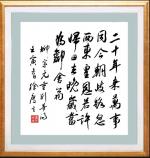 二十年來萬事
同今朝岐路忽
西東皇恩若許
歸田去晚歲當
為鄰舍翁
柳宗元重别夢得
壬寅